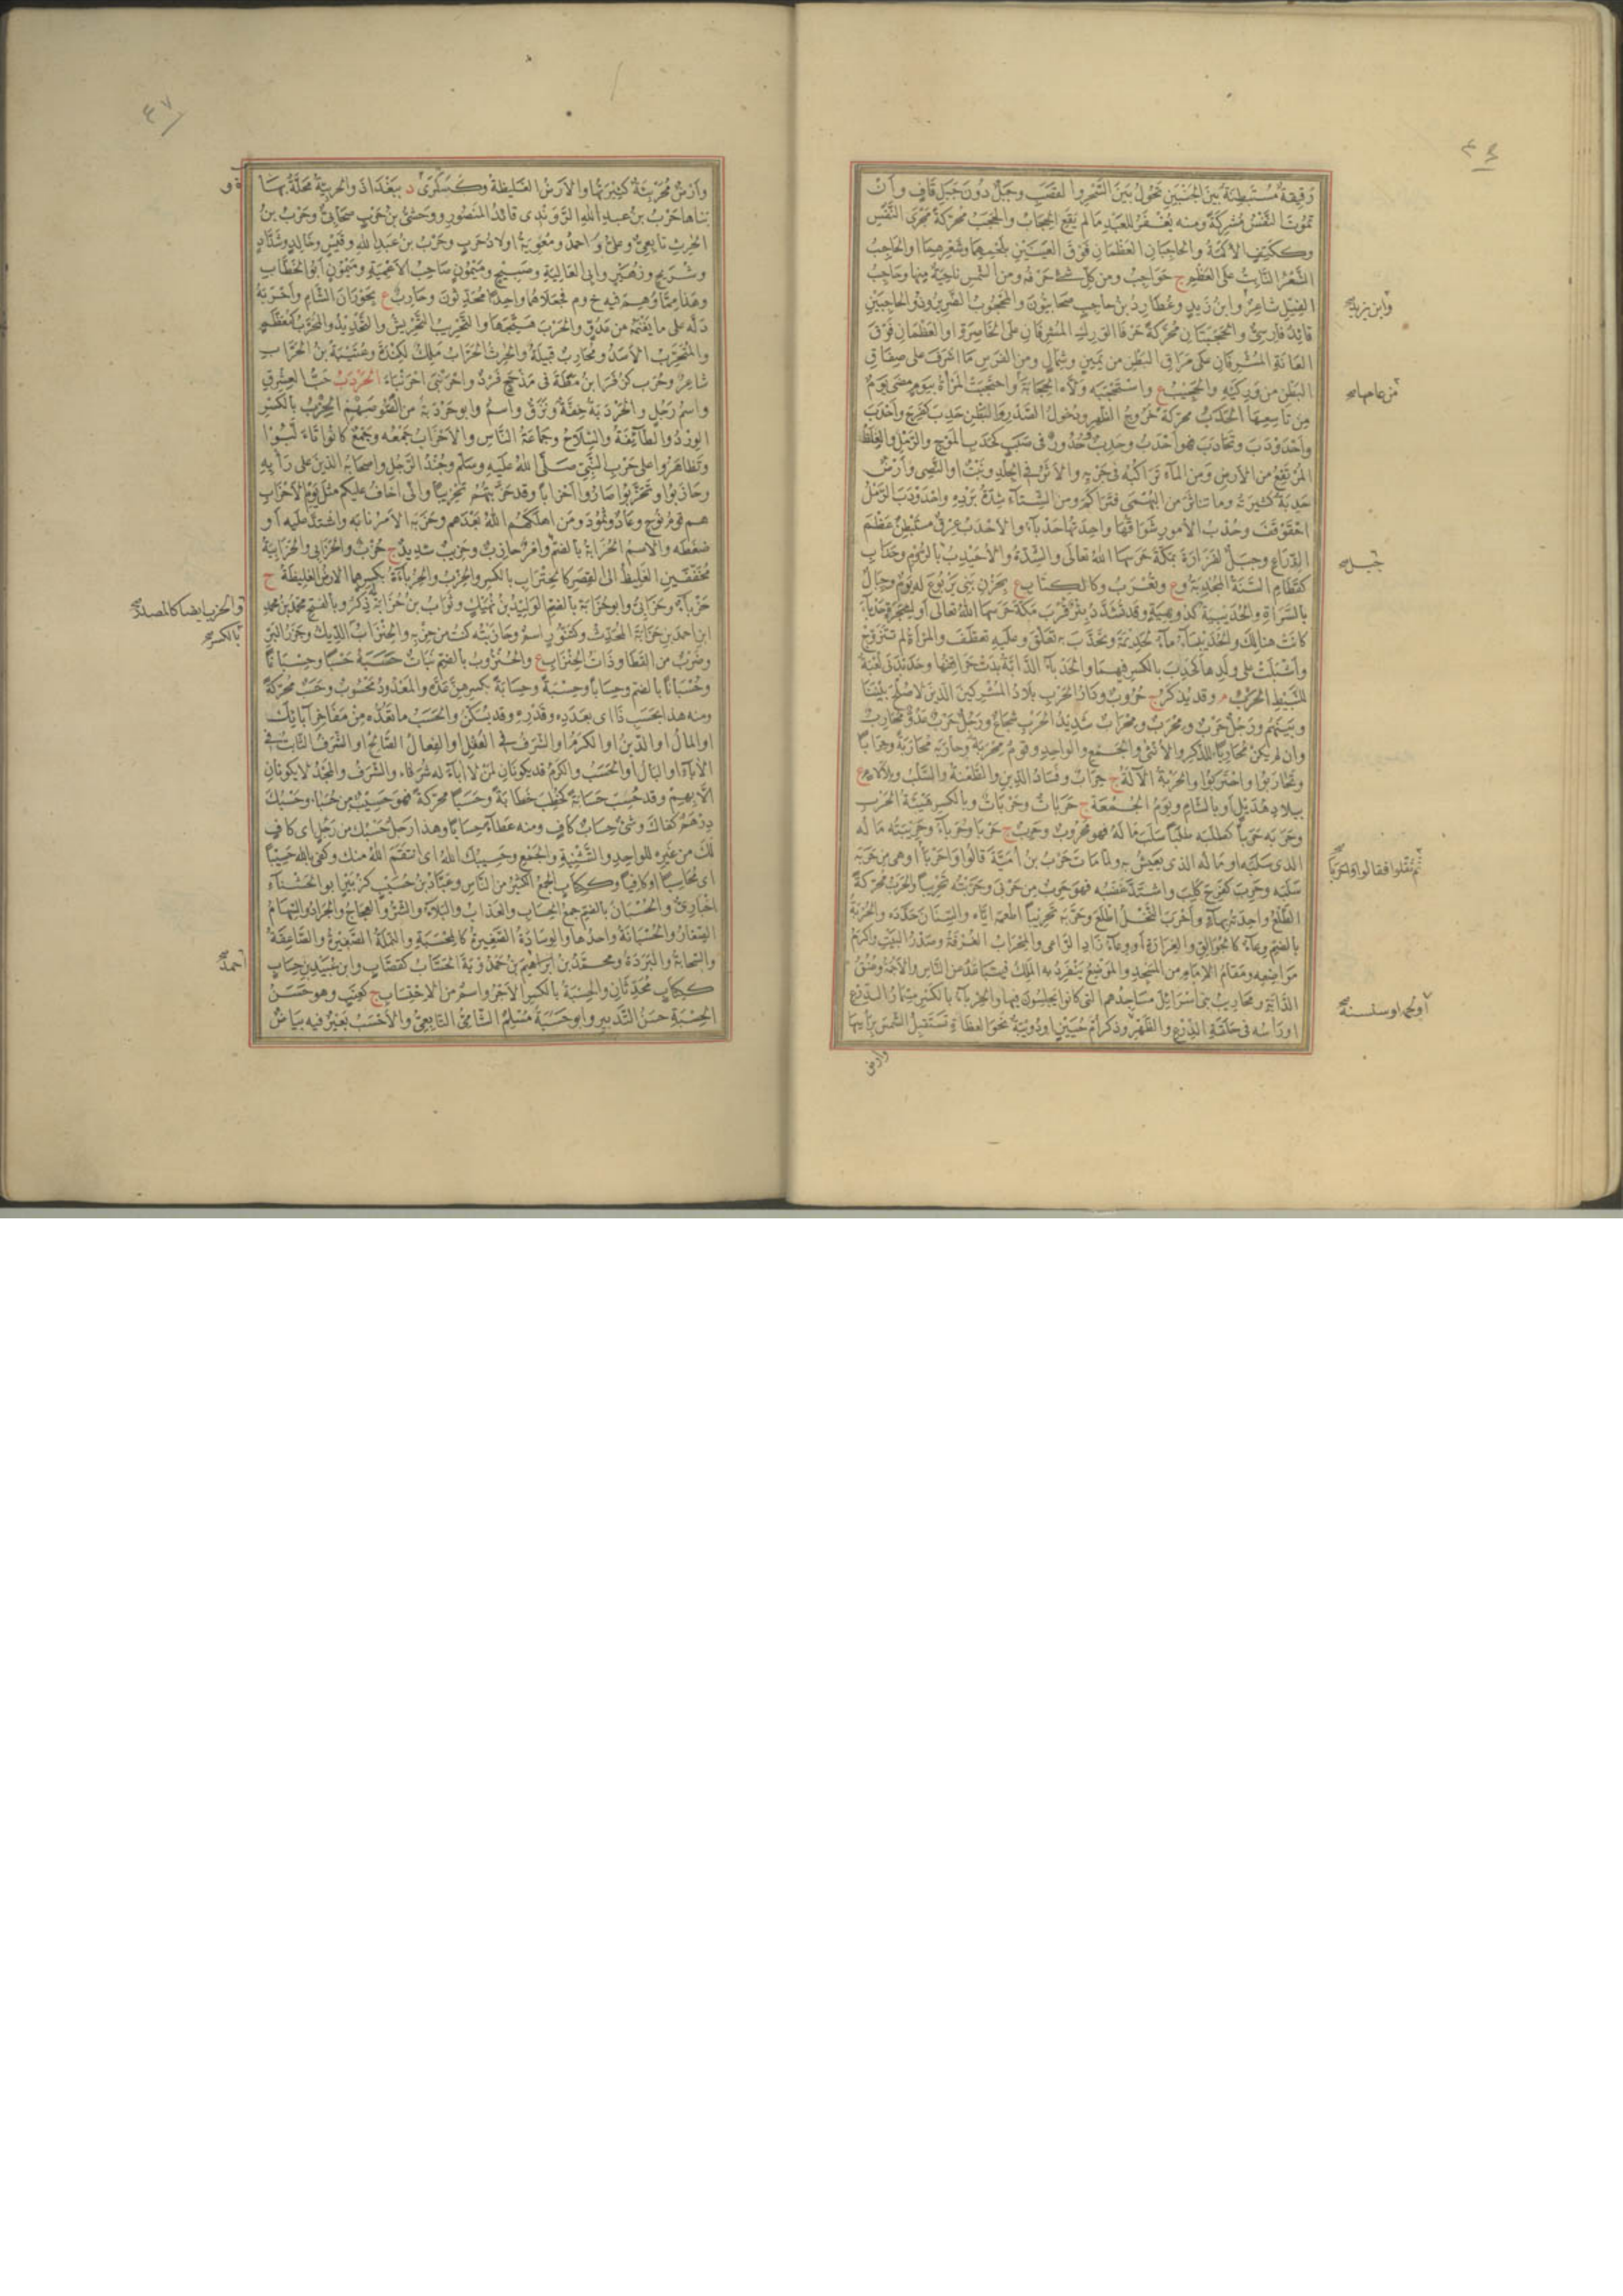 رقيقة مستبطنة بين الجنبين تحول بين السحر والقصب وجبل دون جبل قاف وان
تموت النفس مشركة ومنه يغفر للعبد ما لم يقع الحجاب والحجب محركة مجرى النفس
وككتف الاكمة والحاجبان العظمان فوق العينين بلحمهما وشعرهما او الحاجب
الشعر النابت على العظم ج حواجب ومن كل شئ حرفه ومن الشمس ناحية منها وحاجب
الفيل شاعر وابن زيد وعطارد بن حاجب صحابيون والمحجوب الضرير وذو الحاجبين
وابن يزيد صح
قائد فارسى والحجبتان محركة حرفا الورك المشرفان على الخاصرة او العظمان فوق
العانة المشرفان على مراق البطن من يمين وشمال ومن الفرس ما اشرف على صفاق
البطن من وركيه والحجيب ع واستحجبه ولاه الحجابة واحتجبت المراة بيوم مضى يوم
من تاسعها الحدب محركة خروج الظهر ودخول الصدر والبطن حدب كفرح واحدب
واحدودب وتحادب فهو احدب وحدب وحدور فى صبب كحدب الموج والرمل والغلظ
المرتفع من الارض ومن الماء تراكبه فى جريه والاثر فى الجلد ونبت او النصى وارض
حدبة كثيرته وما تناثر من البهمى فتراكم ومن الشتاء شدة برده واحدودب الرمل
احقوقف وحدب الامور شواقها واحدتها حدباء والاحدب عرق مستبطن عظم
الذراع وجبل لفزارة بمكة حرسها الله تعالى والشدة والاحيدب بالروم وحداب
جبل صح
كقطام السنة المجدبة وع ويعرب وككتاب ع بحزن بنى يربوع له يوم وجبال
بالسراة والحديبية كدويهية وقد تشدد بئر قرب مكة حرسها الله تعالى او لشجرة حدباء
كانت هنالك والحديباء ماء لجذيمة وتحدب به تعلق وعليه تعطف والمراة لم تتزوج
واشبلت على ولدها كحدب بالكسر فيهما والحدباء الدابة بدت حراقفها وحدبدبى لعبة
للنبيط الحرب م وقد يذكر ج حروب ودار الحرب بلاد المشركين الذين لا صلح بيننا
وبينهم ورجل حرب ومحرب ومحراب شديد الحرب شجاع ورجل حرب عدو محارب
وان لم يكن محاربا للذكر والانثى والجمع والواحد وقوم محربة وحاربه محاربة وحرابا
وتحاربوا واحتربوا والحربة الالة ج حراب وفساد الدين والطعنة والسلب وبلا لام ع
ببلاد هذيل او بالشام ويوم الجمعة ج حربات وحربات وبالكسر هيئة الحرب
وحربه حربا كطلبه طلبا سلب ماله فهو محروب وحريب ج حربى وحرباء وحريبته ماله
الذى سلبه او ماله الذى يعيش به ولما مات حرب بن امية قالوا واحربا او هى من حربه
ثم ثقلوا فقالوا واحربا صح
سلبه وحرب كفرح كلب واشتد غضبه فهو حرب من حربى وحربته تحريبا والحرب محركة
الطلع واحدته بهاء واحرب النخل اطلع وحربه تحريبا اطعمه اياه والسنان حدده والحربة
بالضم وعاء كالجوالق والغرارة او وعاء زاد الراعى والمحراب الغرفة وصدر البيت واكرم
مواضعه ومقام الامام من المسجد والموضع ينفرد به الملك فيتباعد عن الناس والاجمة وعنق
الدابة ومحاريب بنى اسرائيل مساجدهم التى كانوا يجلسون فيها والحرباء بالكسر مسمار الدرع
او راسه فى حلقة الدرع والظهر وذكر ام حبين او دويبة نحو العظاءة تستقبل الشمس براسها
وارض
٤٧
وارض محربئة كثيرتها والارض الغليظة وكسكرى د ببغداد والحربية محلة بها
بناها حرب بن عبد الله الراوندى قائد المنصور ووحشى بن حرب صحابى وحرب بن
الحرث تابعى وعلى واحمد ومعوية اولاد حرب وحرب بن عبد الله وقيس وخالد وشداد
وشريح وزهير وابى العالية وصبيح وميمون صاحب الاعمية وميمون ابو الخطاب
وهذا مما وهم فيه خ وم فجعلاهما واحدا محدثون وحارب ع بحوران الشام واحربه
دله على ما يغنمه من عدو والحرب هيجها والتحريب التحريش والتحديد والمحرب كمعظم
والمتحرب الاسد ومحارب قبيلة والحرث الحراب ملك لكندة وعتيبة بن الحراب
شاعر وحرب كزفر ابن مظة فى مذحج فرد واحرنبى احرنباء الحردب حب العشرق
واسم رجل والحردبة خفة ونزق واسم وابو حردبة من اللصوص م الحزب بالكسر
الورد والطائفة والسلاح وجماعة الناس والاحزاب جمعه وجمع كانوا تالبوا
وتظاهروا على حرب النبى صلى الله عليه وسلم وجند الرجل واصحابه الذين على رايه
وحازبوا وتحزبوا صاروا احزابا وقد حزبتهم تحزيبا وانى اخاف عليكم مثل يوم الاحزاب
هم قوم نوح وعاد وثمود ومن اهلكهم الله بعدهم وحزبه الامر نابه واشتد عليه او
ضغطه والاسم الحزابة بالضم وامر حازب وحزيب شديد ج حزب والحزابى والحزابية
مخففين الغليظ الى القصر كالحنزاب بالكسر والحزب والحزباءة بكسرهما الارض الغليظة ج
حزباء وحزابى وابو حزابة بالضم الوليد بن نهيك وثواب بن حزابة ذكر وبالفتح محمد بن محمد
بالكسر صح
ابن احمد بن حزابة المحدث وكتنور اسم وحازبته كنت من حزبه والحنزاب الديك وجزر البر
وضرب من القطا وذات الحنزاب ع والحنزوب بالضم نبات حسبه حسبا وحسبانا
وحسبانا بالضم وحسابا وحسبة وحسابة بكسرهن عده والمعدود محسوب وحسب محركة
ومنه هذا بحسب ذا اى بعدده وقدره وقد يسكن والحسب ما تعده من مفاخر ابائك
او المال او الدين او الكرم او الشرف فى العقل او الفعال الصالح او الشرف الثابت فى
الاباء او البال او الحسب والكرم قد يكونان لمن لا اباء له شرفاء والشرف والمجد لا يكونان
الا بهم وقد حسب حسابة كخطب خطابة وحسبا محركة فهو حسيب من حسباء وحسبك
درهم كفاك وشئ حساب كاف ومنه عطاء حسابا وهذا رجل حسبك من رجل اى كاف
لك من غيره للواحد والتثنية والجمع وحسيبك الله اى انتقم الله منك وكفى بالله حسيبا
اى محاسبا او كافيا وككتاب الجمع الكثير من الناس وعباد بن حسيب كزبير ابو الخشناء
اخبارى والحسبان بالضم جمع الحساب والعذاب والبلاء والشر والعجاج والجراد والسهام
الصغار والحسبانة واحدها والوسادة الصغيرة كالمحسبة والنملة الصغيرة والصاعقة
والسحابة والبردة ومحمد بن ابراهيم بن حمدويه الحساب كقصاب وابن عبيد بن حساب
احمد صح
ككتاب محدثان والحسبة بالكسر الاجر واسم من الاحتساب ج كعنب وهو حسن
الحسبة حسن التدبير وابو حسبة مسلم الشامى التابعى والاحسب بعير فيه بياض